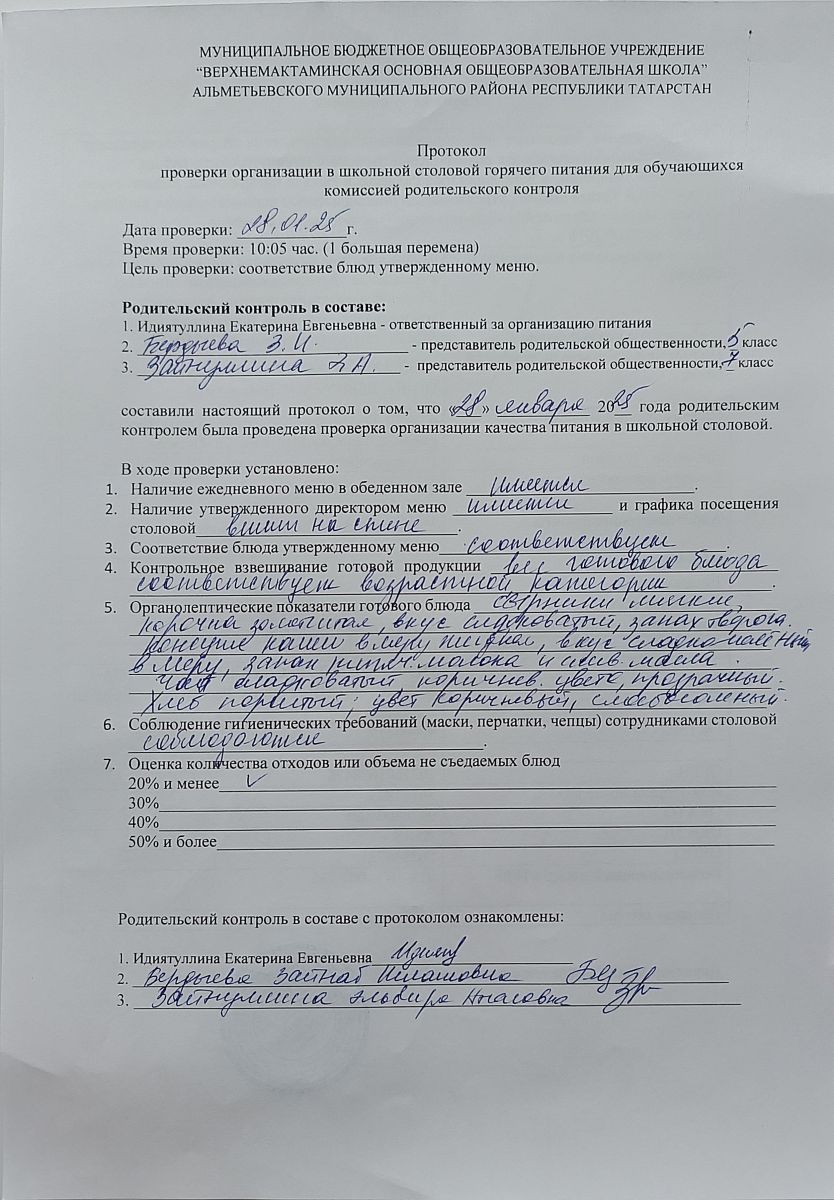 МУНИЦИПАЛЬНОЕ БЮДЖЕТНОЕ ОБЩЕОБРАЗОВАТЕЛЬНОЕ УЧРЕЖДЕНИЕ
“ВЕРХНЕМАКТАМИНСКАЯ ОСНОВНАЯ ОБЩЕОБРАЗОВАТЕЛЬНАЯ ШКОЛА”
АЛЬМЕТЬЕВСКОГО МУНИЦИПАЛЬНОГО РАЙОНА РЕСПУБЛИКИ ТАТАРСТАН
Протокол
проверки организации в школьной столовой горячего питания для обучающихся
комиссией родительского контроля
Дата проверки: 28.01.25 г.
Время проверки: 10:05 час. (1 большая перемена)
Цель проверки: соответствие блюд утвержденному меню.
Родительский контроль в составе:
1. Идиятуллина Екатерина Евгеньевна - ответственный за организацию питания
2. Бердыева З.И. - представитель родительской общественности, 5 класс
3. Зайнуллина Э.А. - представитель родительской общественности, 7 класс
составили настоящий протокол о том, что «28» января 2025 года родительским
контролем была проведена проверка организации качества питания в школьной столовой.
В ходе проверки установлено:
1. Наличие ежедневного меню в обеденном зале имеется.
2. Наличие утвержденного директором меню имеется и графика посещения
столовой висит на стене.
3. Соответствие блюда утвержденному меню соответствует.
4. Контрольное взвешивание готовой продукции вес готового блюда
соответствует возрастной категории.
5. Органолептические показатели готового блюда сырники мягкие,
корочка золотистая, вкус сладковатый, запах творога.
каши в меру жидкая, вкус сладко
в меру, запах молока и слив. масла.
Чай сладковатый коричнев. цвета, прозрачный.
Хлеб пористый, цвет коричневый,
6. Соблюдение гигиенических требований (маски, перчатки, чепцы) сотрудниками столовой
соблюдаются.
7. Оценка количества отходов или объема не съедаемых блюд
20% и менее ✓
30%
40%
50% и более
Родительский контроль в составе с протоколом ознакомлены:
1. Идиятуллина Екатерина Евгеньевна
2. Бердыева Зайнаб
3. Зайнуллина Эльвира